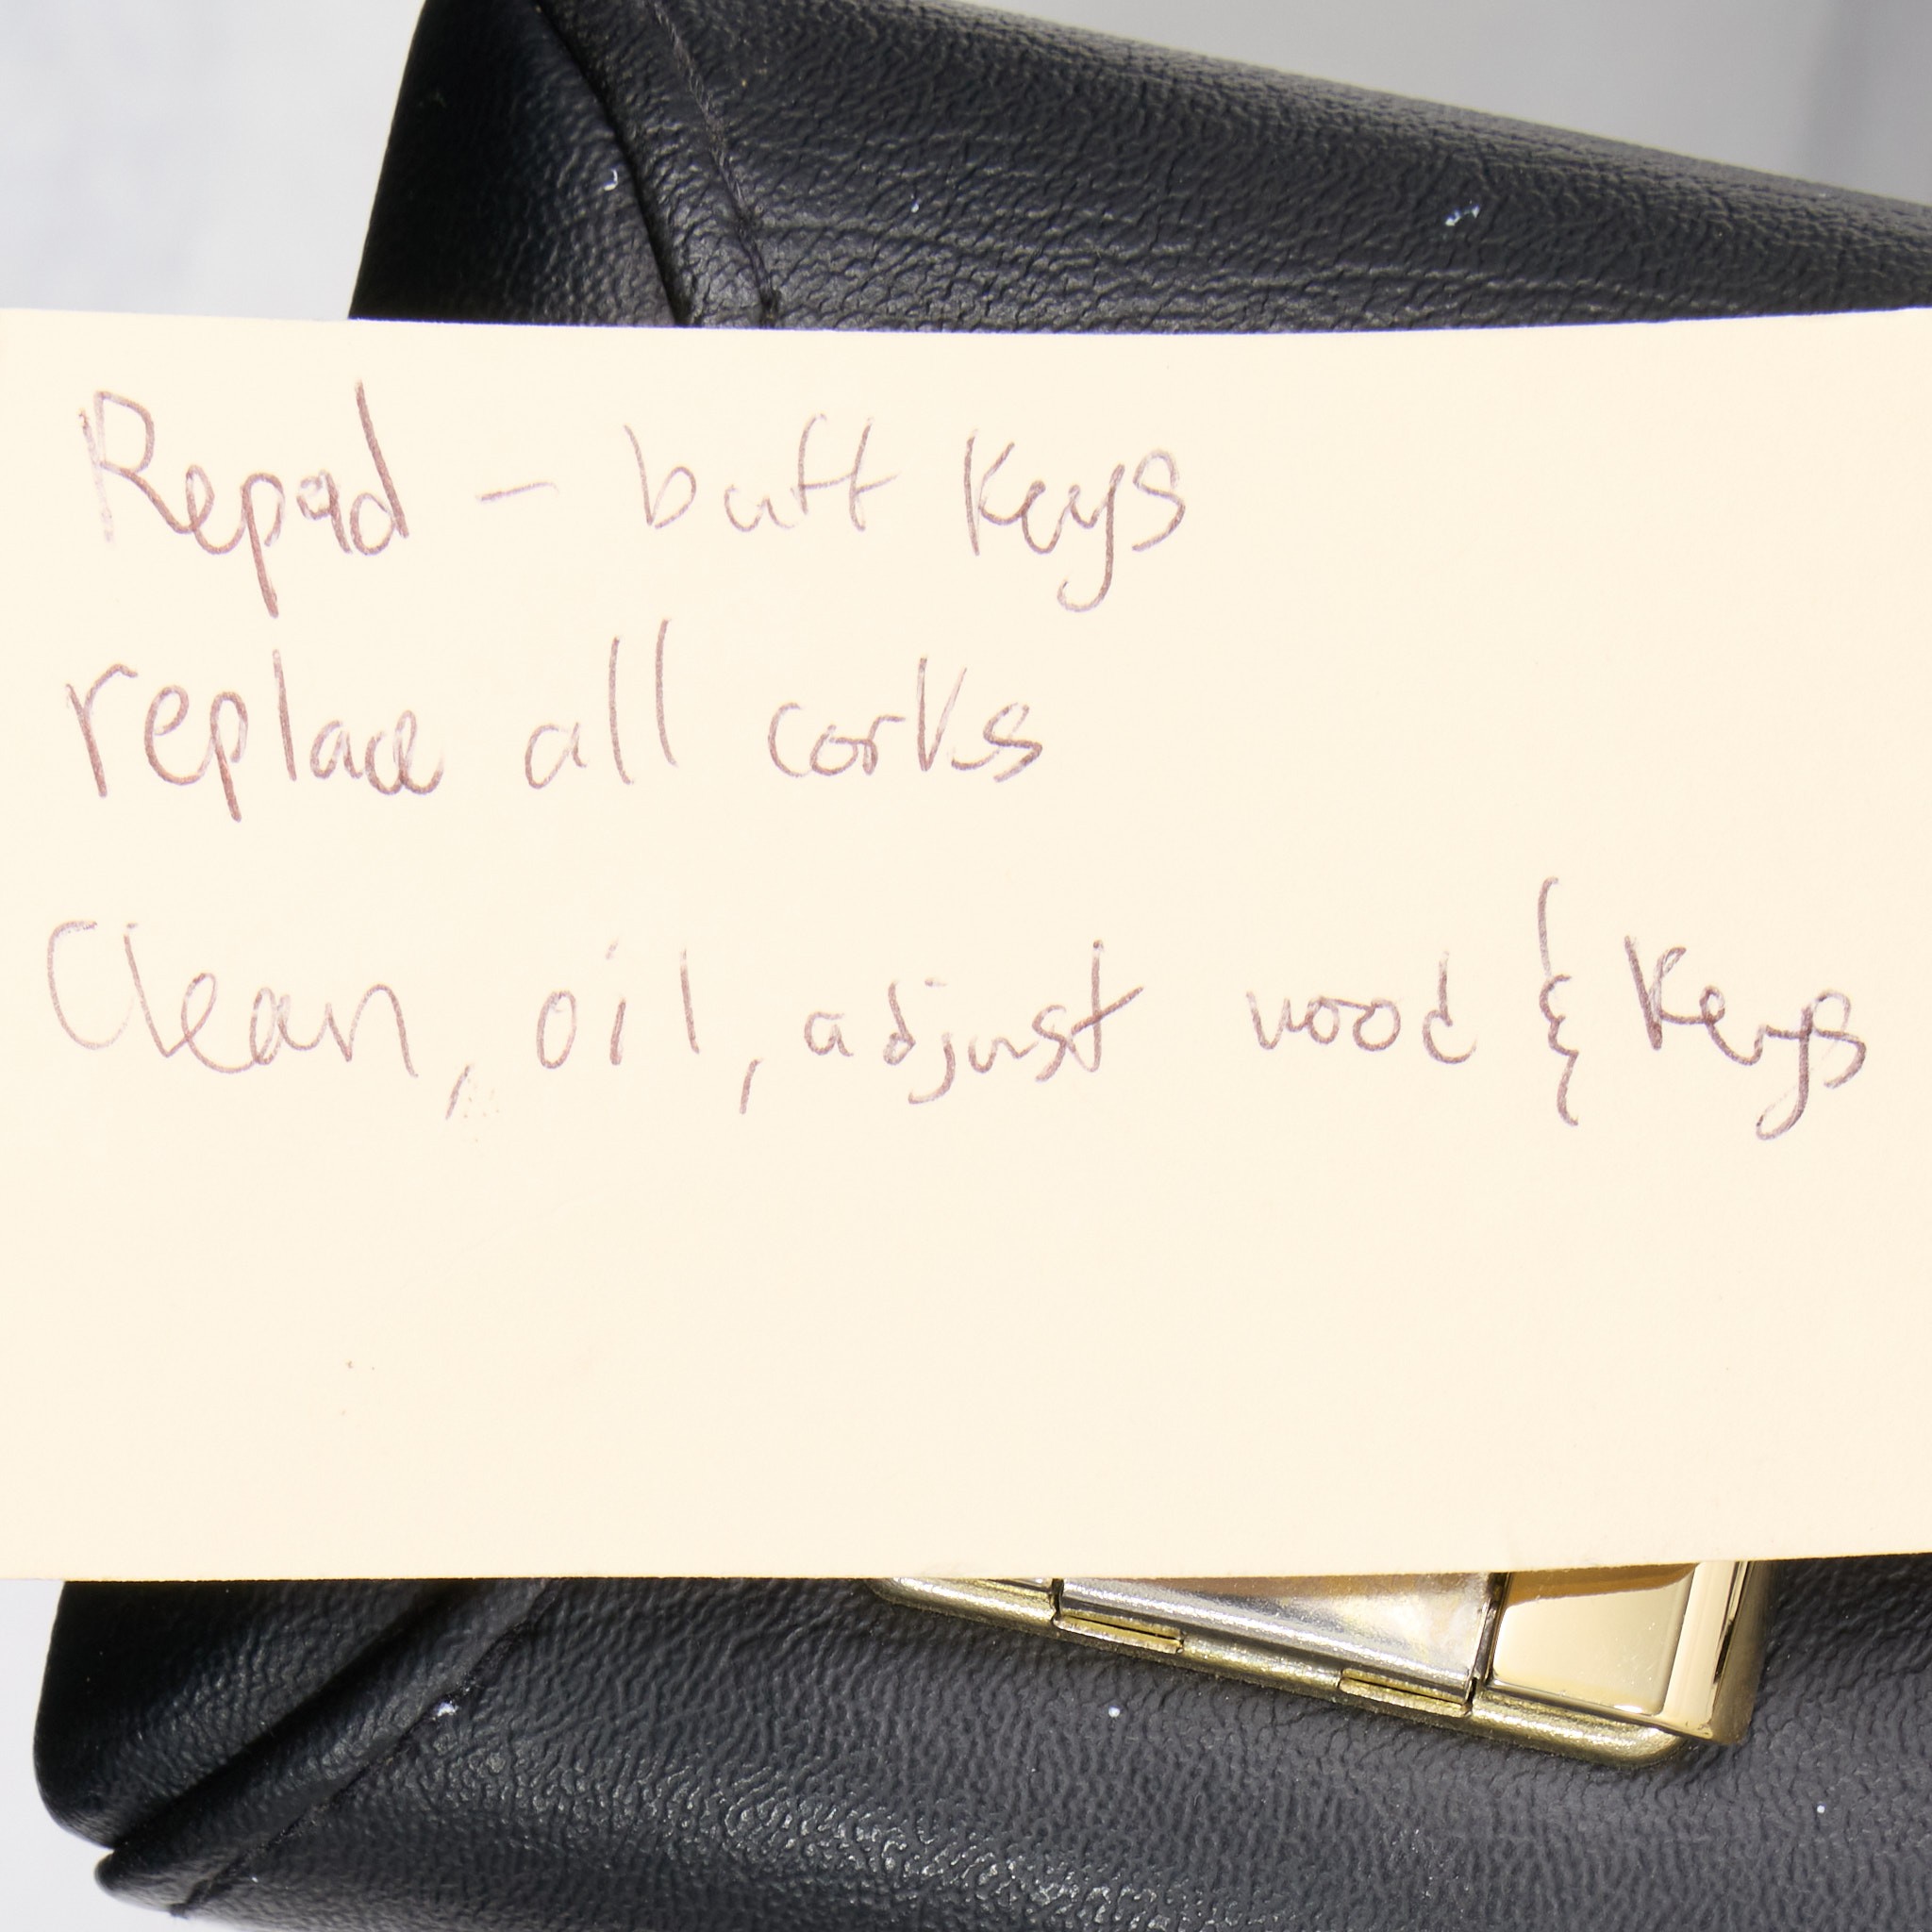 Repad - buff keys
replace all corks
Clean, oil, adjust wood & keys